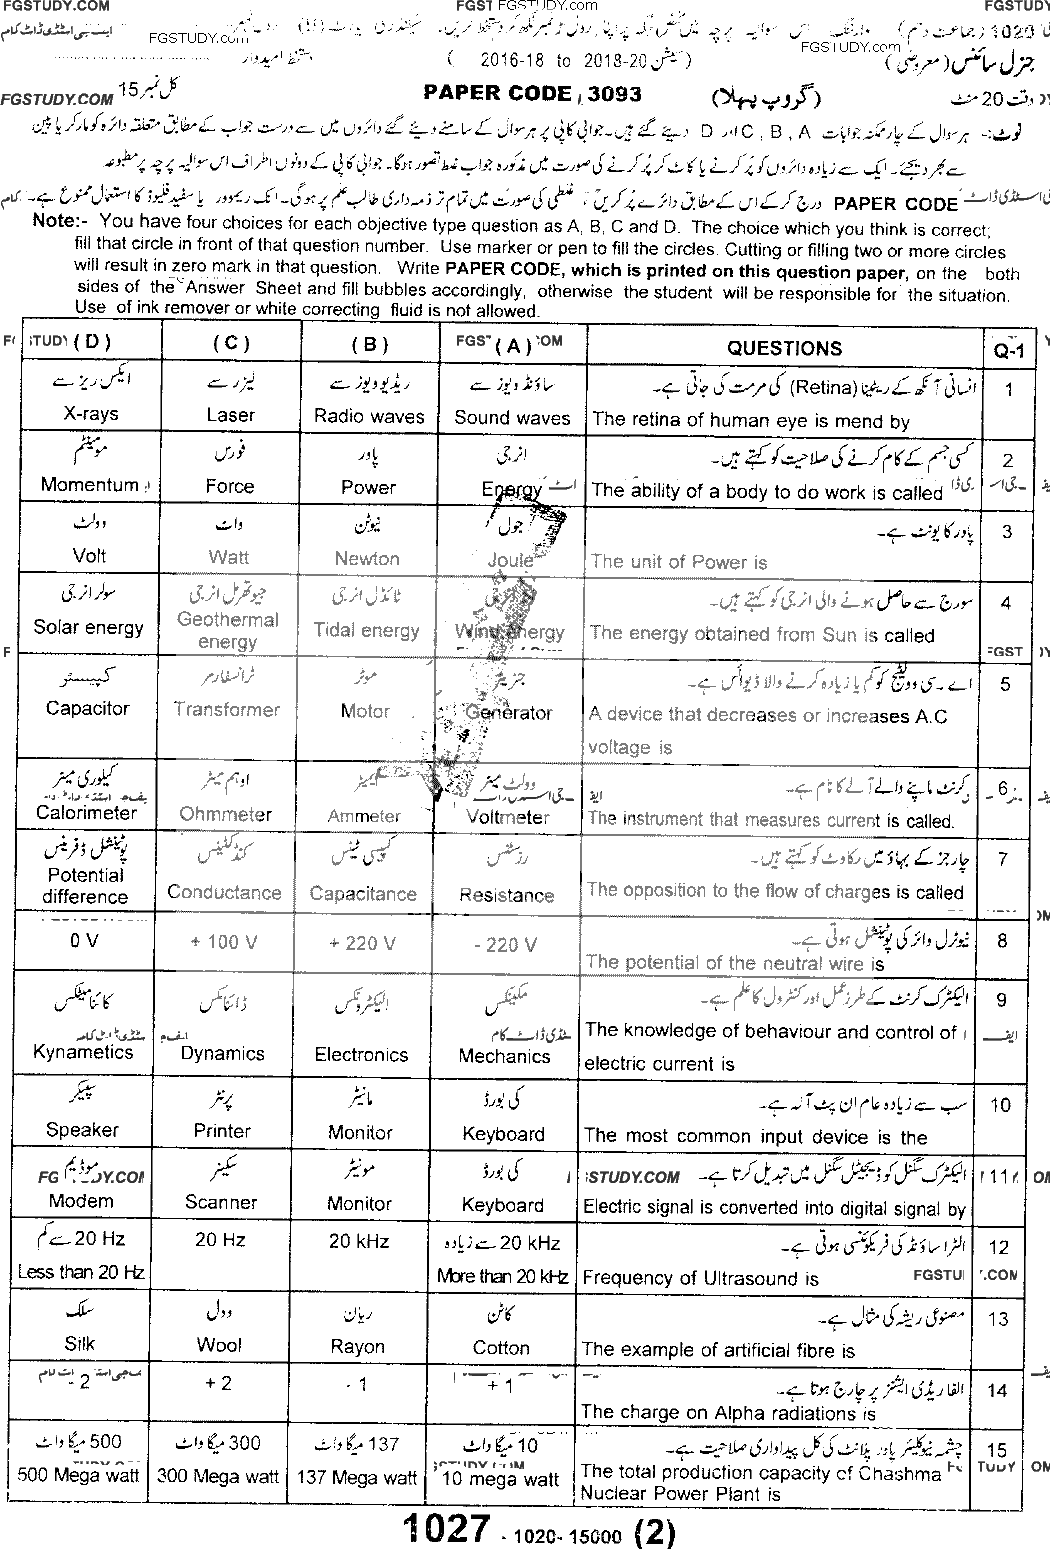 FGSTUDY.COM FGST FGSTUDY.com FGSTUDY
FGSTUDY.com FGSTUDY.com
( سیشن 20-2018 to 18-2016 )
جنرل سائنس (معروضی)
FGSTUDY.COM کل نمبر 15 PAPER CODE 3093 (گروپ پہلا) وقت 20 منٹ
نوٹ:- ہر سوال کے چار ممکنہ جوابات A ، B ، C اور D دیئے گئے ہیں۔ جوابی کاپی پر ہر سوال کے سامنے دیئے گئے دائروں میں سے درست جواب کے مطابق متعلقہ دائرہ کو مارکر یا پین
سے بھر دیجئے۔ ایک سے زیادہ دائروں کو پُر کرنے یا کاٹ کر پُر کرنے کی صورت میں مذکورہ جواب غلط تصور ہوگا۔ جوابی کاپی کے دونوں اطراف اس سوالیہ پرچہ پر مطبوعہ
PAPER CODE درج کر کے اس کے مطابق دائرے پُر کریں، غلطی کی صورت میں تمام تر ذمہ داری طالب علم پر ہوگی۔ انک ریموور یا سفید فلیوڈ کا استعمال ممنوع ہے۔
Note:- You have four choices for each objective type question as A, B, C and D. The choice which you think is correct;
fill that circle in front of that question number. Use marker or pen to fill the circles. Cutting or filling two or more circles
will result in zero mark in that question. Write PAPER CODE, which is printed on this question paper, on the both
sides of the Answer Sheet and fill bubbles accordingly, otherwise the student will be responsible for the situation.
Use of ink remover or white correcting fluid is not allowed.
(D) (C) (B) (A) QUESTIONS Q-1
ایکس ریز سے لیزر سے ریڈیو ویوز سے ساؤنڈ ویوز سے انسانی آنکھ کے ریٹینا (Retina) کی مرمت کی جاتی ہے۔ 1
X-rays Laser Radio waves Sound waves The retina of human eye is mend by
مومینٹم فورس پاور انرجی کسی جسم کے کام کرنے کی صلاحیت کو کہتے ہیں۔ 2
Momentum Force Power Energy The ability of a body to do work is called
وولٹ واٹ نیوٹن جول پاور کا یونٹ ہے۔ 3
Volt Watt Newton Joule The unit of Power is
سولر انرجی جیوتھرمل انرجی ٹائڈل انرجی سورج سے حاصل ہونے والی انرجی کو کہتے ہیں۔ 4
Solar energy Geothermal energy Tidal energy Wind energy The energy obtained from Sun is called
کپیسٹر ٹرانسفارمر موٹر جنریٹر اے۔سی وولٹیج کو کم یا زیادہ کرنے والا ڈیوائس ہے۔ 5
Capacitor Transformer Motor Generator A device that decreases or increases A.C
voltage is
کیلوری میٹر اوہم میٹر ایمیٹر وولٹ میٹر کرنٹ ماپنے والے آلے کا نام ہے۔ 6
Calorimeter Ohmmeter Ammeter Voltmeter The instrument that measures current is called.
پوٹینشل ڈفرینس کنڈکٹینس کپیسی ٹینس رزسٹنس چارجز کے بہاؤ میں رکاوٹ کو کہتے ہیں۔ 7
Potential difference Conductance Capacitance Resistance The opposition to the flow of charges is called
0 V + 100 V + 220 V - 220 V نیوٹرل وائر کی پوٹینشل ہوتی ہے۔ 8
The potential of the neutral wire is
کائنامیٹکس ڈائنامکس الیکٹرونکس مکینکس الیکٹرک کرنٹ کے طرز عمل اور کنٹرول کا علم ہے۔ 9
Kynametics Dynamics Electronics Mechanics The knowledge of behaviour and control of
electric current is
سپیکر پرنٹر مانیٹر کی بورڈ سب سے زیادہ عام ان پٹ آلہ ہے۔ 10
Speaker Printer Monitor Keyboard The most common input device is the
موڈیم سکینر مونیٹر کی بورڈ الیکٹرک سگنل کو ڈیجیٹل سگنل میں تبدیل کرتا ہے۔ 11
Modem Scanner Monitor Keyboard Electric signal is converted into digital signal by
20 Hz سے کم 20 Hz 20 kHz 20 kHz سے زیادہ الٹرا ساؤنڈ کی فریکوئنسی ہوتی ہے۔ 12
Less than 20 Hz More than 20 kHz Frequency of Ultrasound is FGSTU .COM
سلک وول ریان کاٹن مصنوعی ریشہ کی مثال ہے۔ 13
Silk Wool Rayon Cotton The example of artificial fibre is
2 + 2 - 1 + 1 الفا ریڈی ایشنز پر چارج ہوتا ہے۔ 14
The charge on Alpha radiations is
500 میگا واٹ 300 میگا واٹ 137 میگا واٹ 10 میگا واٹ چشمہ نیوکلیئر پاور پلانٹ کی کل پیداواری صلاحیت ہے۔ 15
500 Mega watt 300 Mega watt 137 Mega watt 10 mega watt The total production capacity of Chashma
Nuclear Power Plant is
1027 - 1020- 15000 (2)